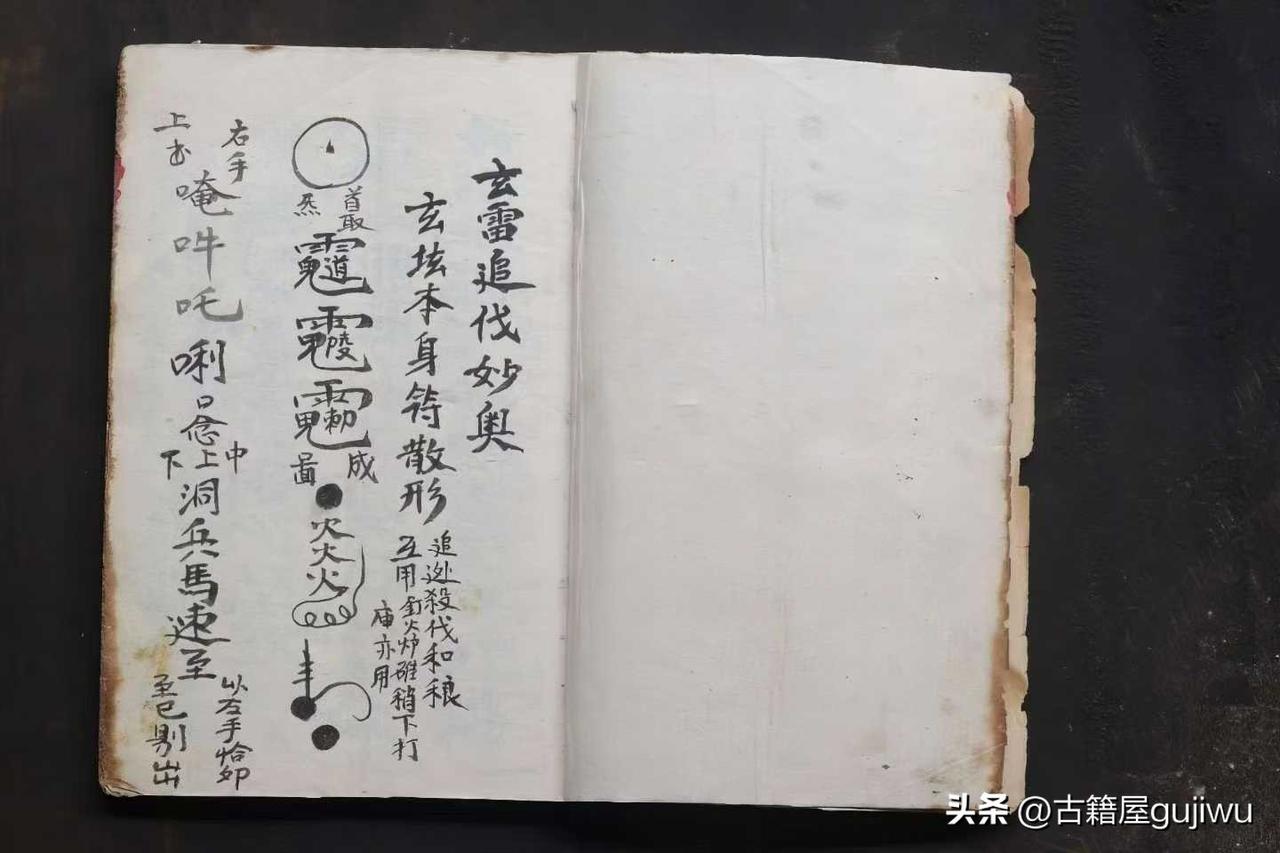 玄雷追伐妙奥
玄坛本身符散形
追逊殺伐和稂
互用釘火炉碓稍下打
庙亦用
成
火火火
右手
上书
唵吽吒唎
口念
上中下洞兵馬速至
以左手恰卯
至巳剔出
头条 @古籍屋gujiwu